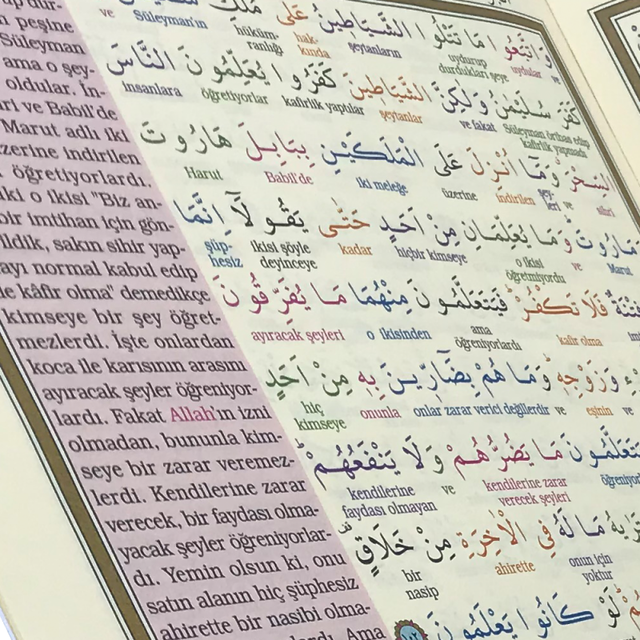 peşine
Süleyman
ama o şey-
oldular. İn-
ri ve Babil'de
Marut adlı iki
zerine indirilen
öğretiyorlardı.
ki o ikisi "Biz an-
bir imtihan için gön-
ildik, sakın sihir yap-
ayı normal kabul edip
kâfir olma" demedikçe
kimseye bir şey öğret-
mezlerdi. İşte onlardan
koca ile karısının arasını
ayıracak şeyler öğreniyor-
lardı. Fakat Allah'ın izni
olmadan, bununla kim-
seye bir zarar veremez-
lerdi. Kendilerine zarar
verecek, bir faydası olma-
yacak şeyler öğreniyorlar-
dı. Yemin olsun ki, onu
satın alanın hiç şüphesiz
ahirette bir nasibi olma-
Ama
وَاتَّبَعُوا مَا تَتْلُوا الشَّيَاطِينُ عَلَى مُلْكِ
ve uydular uydurup durdukları şeye şeytanların hakkında hükümranlığı Süleyman'ın ve
كَفَرَ سُلَيْمٰنُ وَلٰكِنَّ الشَّيَاطِينَ كَفَرُوا يُعَلِّمُونَ النَّاسَ
Süleyman ve fakat şeytanlar kafirlik yaptılar öğretiyorlar insanlara
السِّحْرَ وَمَا اُنْزِلَ عَلَى الْمَلَكَيْنِ بِبَابِلَ هَارُوتَ
sihri ve şeyleri indirilen üzerine iki meleğe Babil'de Harut
مَارُوتَ وَمَا يُعَلِّمَانِ مِنْ اَحَدٍ حَتّٰى يَقُولَا اِنَّمَا
Marut ve o ikisi öğretmiyordu hiçbir kimseye kadar ikisi şöyle deyinceye şüphesiz
فِتْنَةٌ فَلَا تَكْفُرْ فَيَتَعَلَّمُونَ مِنْهُمَا مَا يُفَرِّقُونَ
kafir olma ama öğreniyorlardı o ikisinden ayıracak şeyleri
وَزَوْجِهِ وَمَا هُمْ بِضَارِّينَ بِهِ مِنْ اَحَدٍ
ve eşinin ve onlar zarar verici değillerdir onunla hiç kimseye
يَتَعَلَّمُونَ مَا يَضُرُّهُمْ وَلَا يَنْفَعُهُمْ
kendilerine zarar verecek şeyleri ve kendilerine faydası olmayan
مَا لَهُ فِي الْاٰخِرَةِ مِنْ خَلَاقٍ
onun için yoktur ahirette bir nasip
لَوْ كَانُوا يَعْلَمُونَ